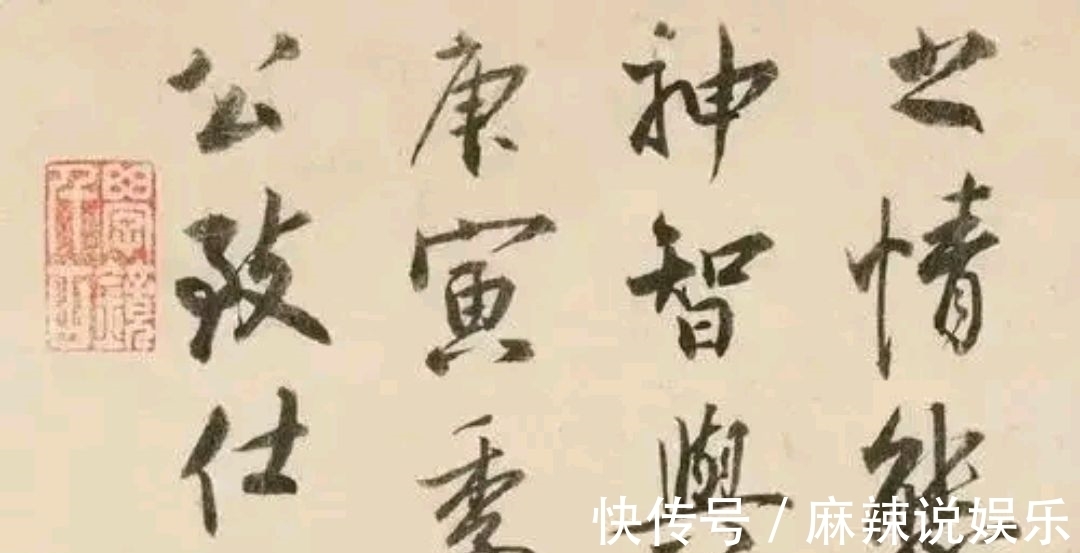 之情
神智與
庚寅
公致仕
快传号 / 麻辣说娱乐